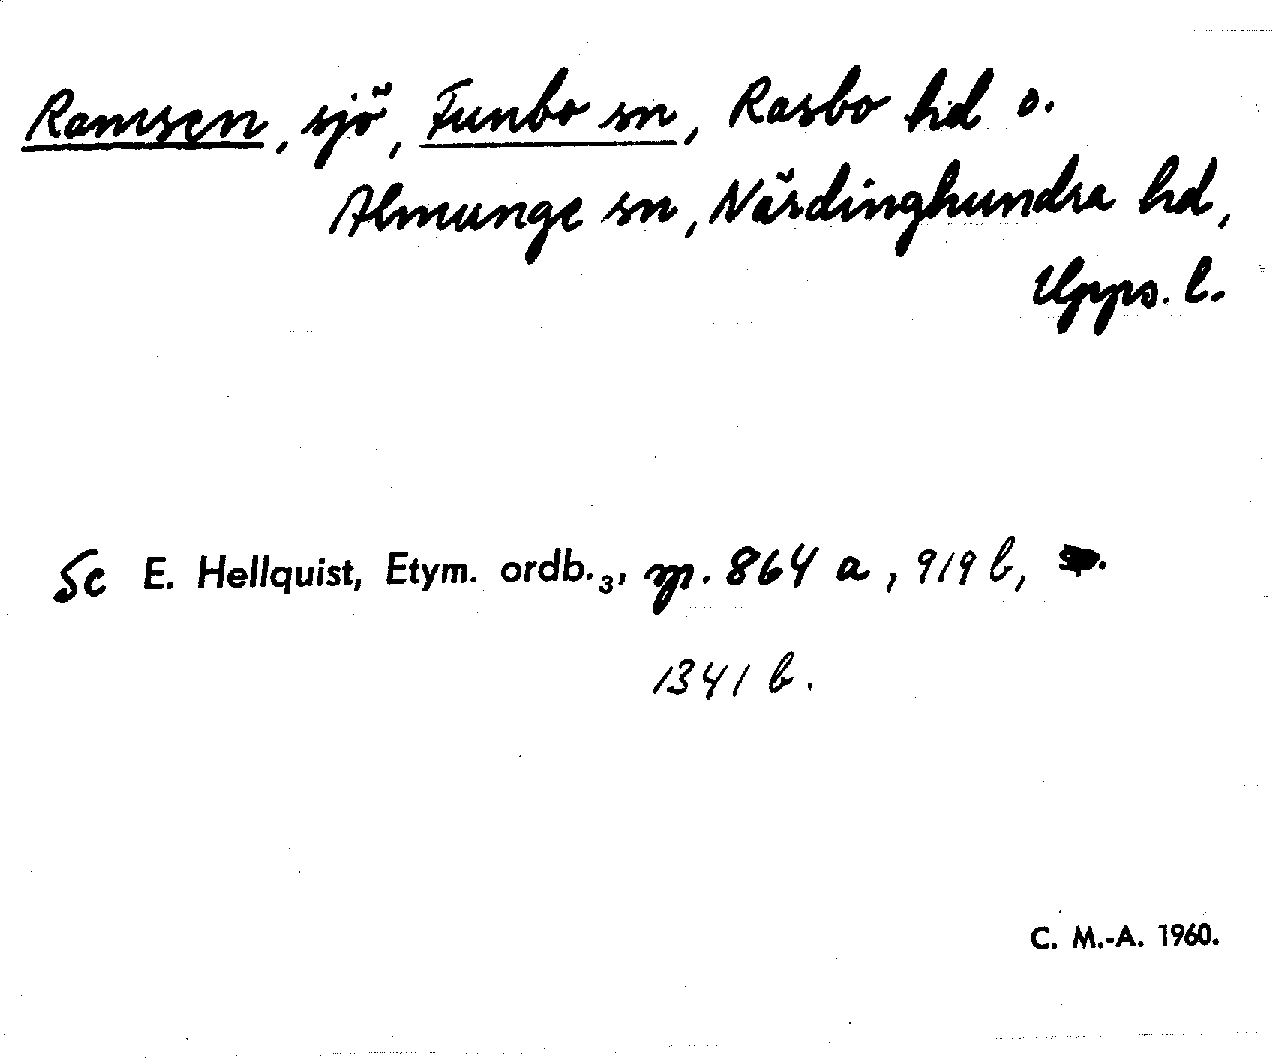 Ramsen, sjö, Funbo sn, Rasbo hd o.
Almunge sn, Närdinghundra hd,
Upps. l.
Se E. Hellquist, Etym. ordb.3, sp. 864 a, 919 b,
1341 b.
C. M.-A. 1960.